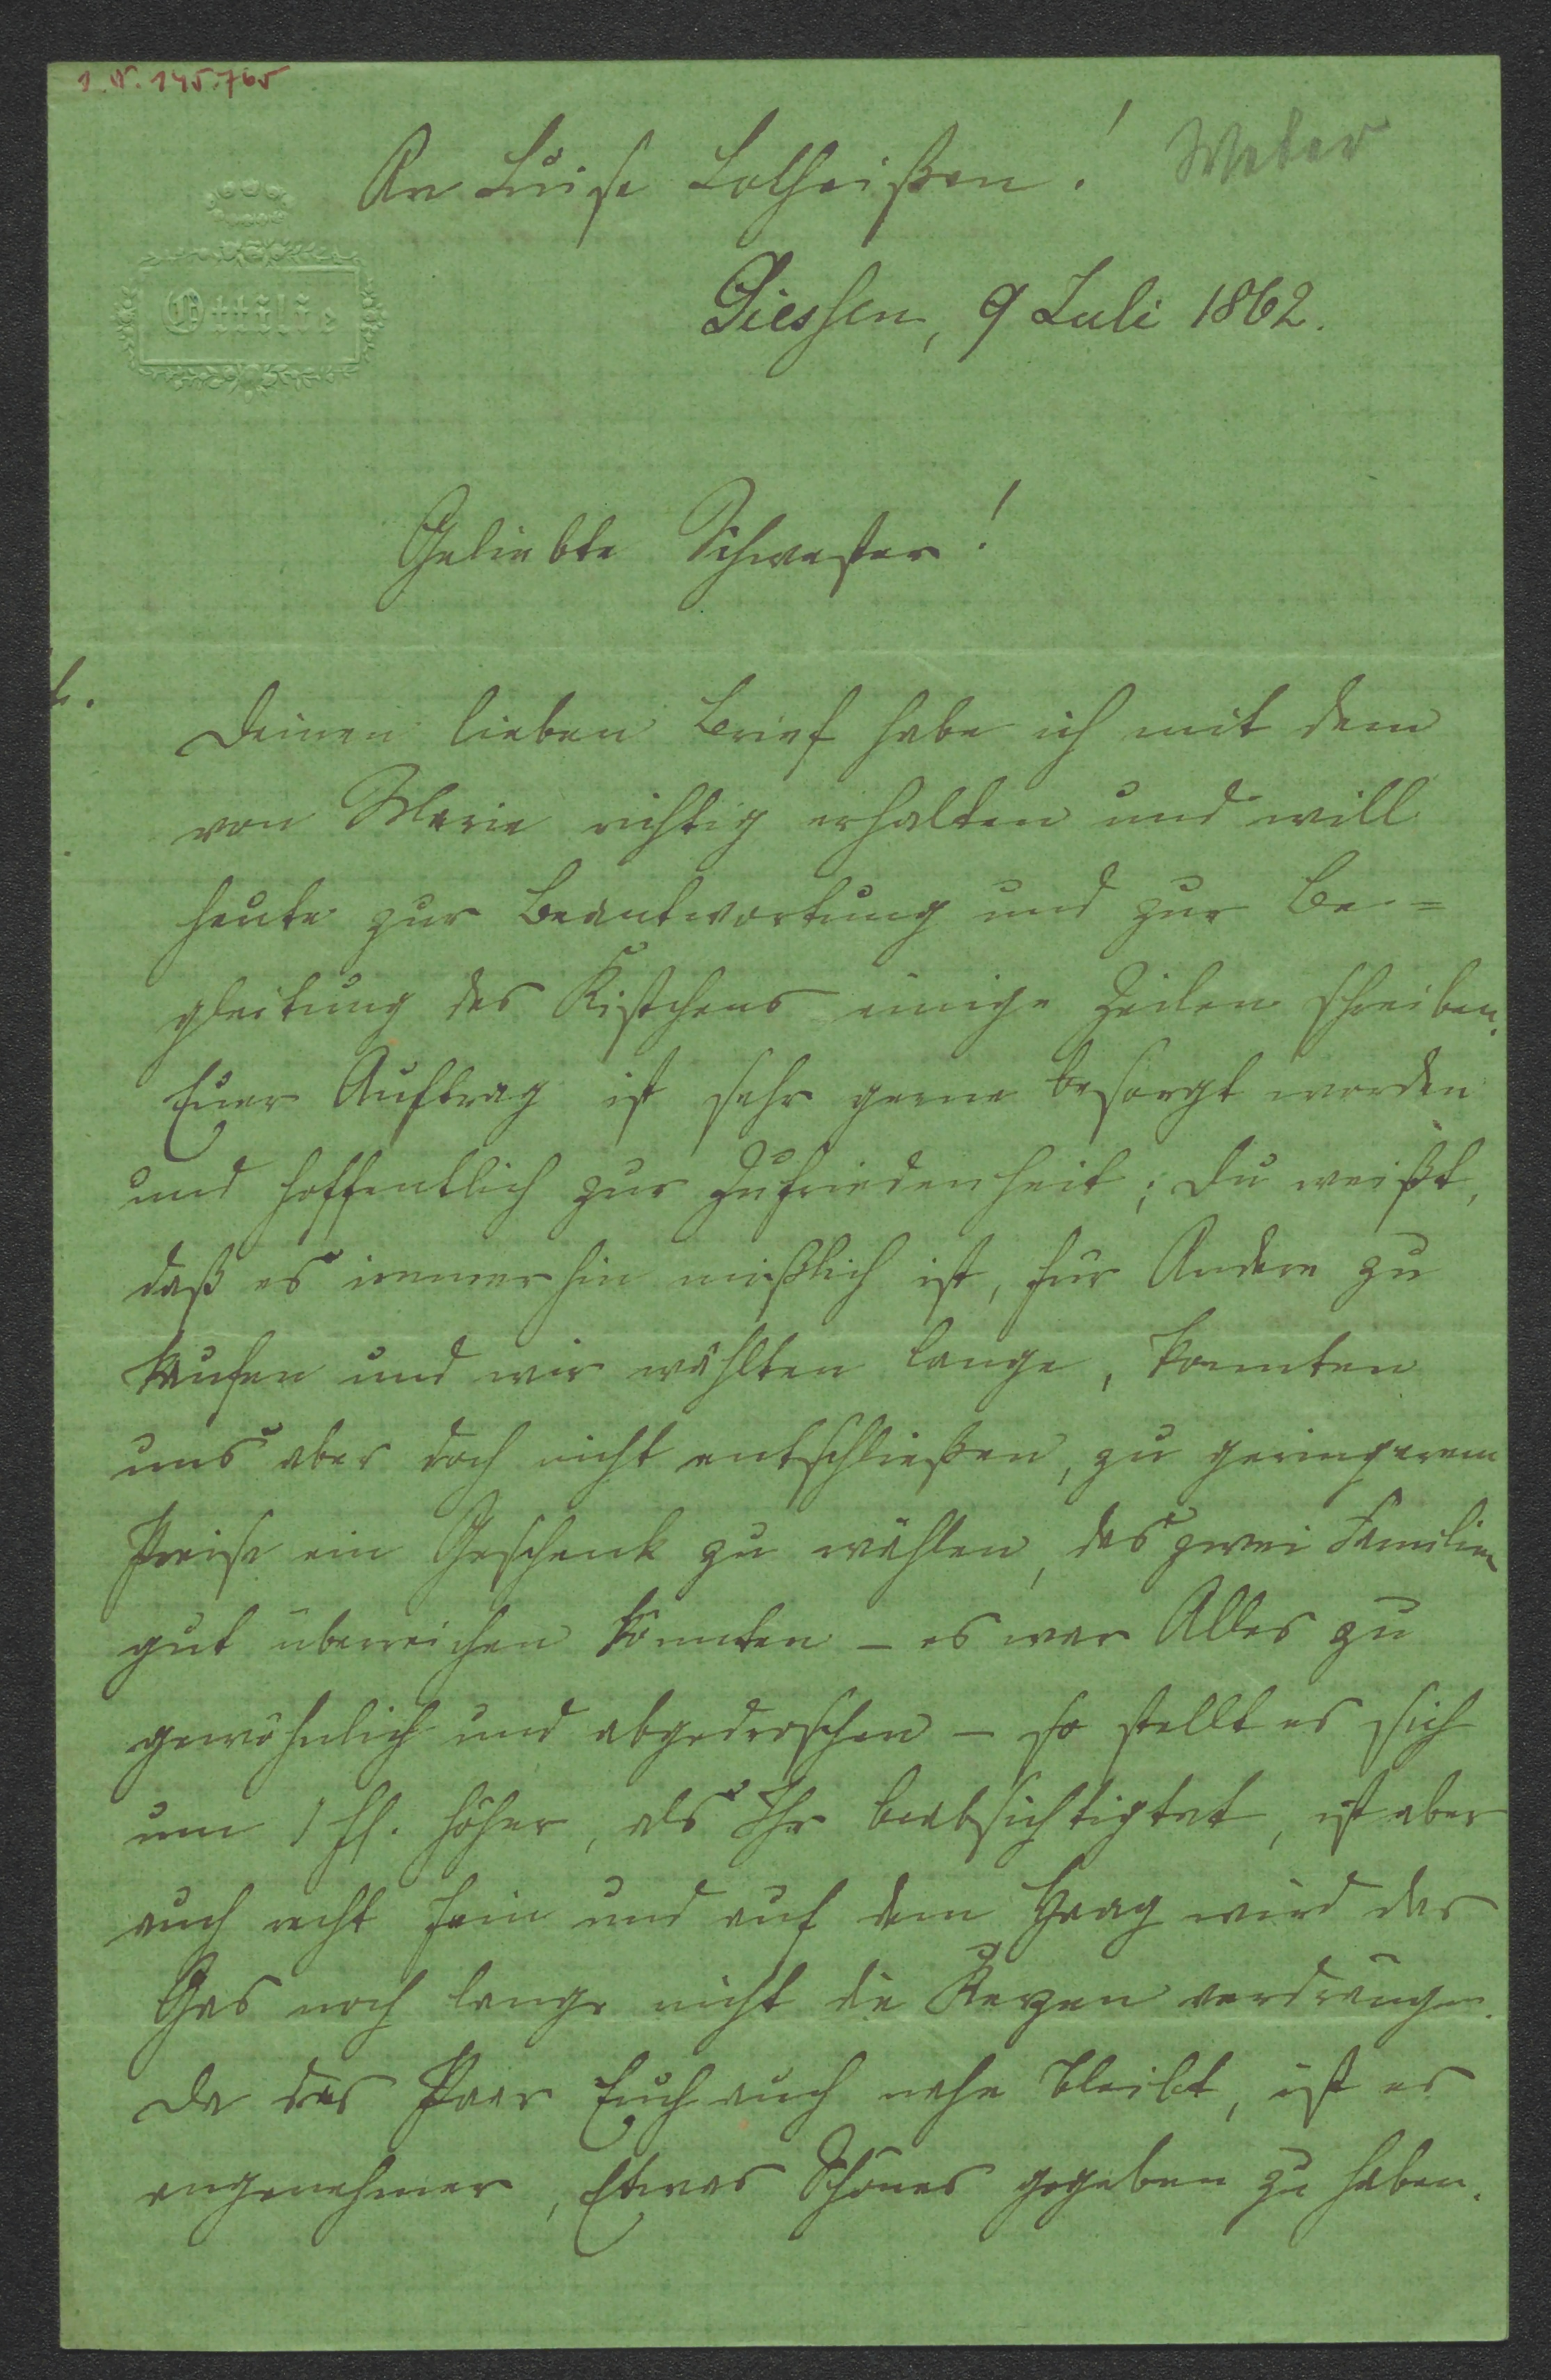 I.N. 145.765
An Luise Lotheißen!
Weber
Ottilie
Giessen, 9 Juli 1862.
Geliebte Schwester!
Deinen lieben Brief habe ich mit dem
von Marie richtig erhalten und will
heute zur Beantwortung und zur Be=
gleitung des Kistchens einige Zeilen schreiben.
Euer Auftrag ist sehr gerne besorgt worden
und hoffentlich zur Zufriedenheit; Du weißt,
daß es immerhin mißlich ist, für Andere zu
kaufen und wir wählten lange, konnten
uns aber doch nicht entschließen, zu geringerem
Preise ein Geschenk zu wählen, das zwei Familien
gut überreichen könnten – es war Alles zu
gewöhnlich und abgedroschen – so stellt es sich
um 1 fl. höher, als Ihr beabsichtigtet, ist aber
auch recht fein und auf dem Haag wird das
Gas noch lange nicht die Kerzen verdrängen.
Da das Paar Euch auch nahe bleibt, ist es
angenehmer, Etwas Schönes gegeben zu haben.